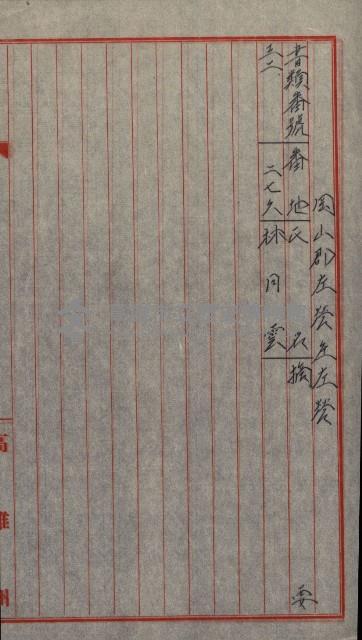 岡山郡左營庄左營
書類番號 番地 氏名 摘要
三二 二七久 林同雲
高雄州